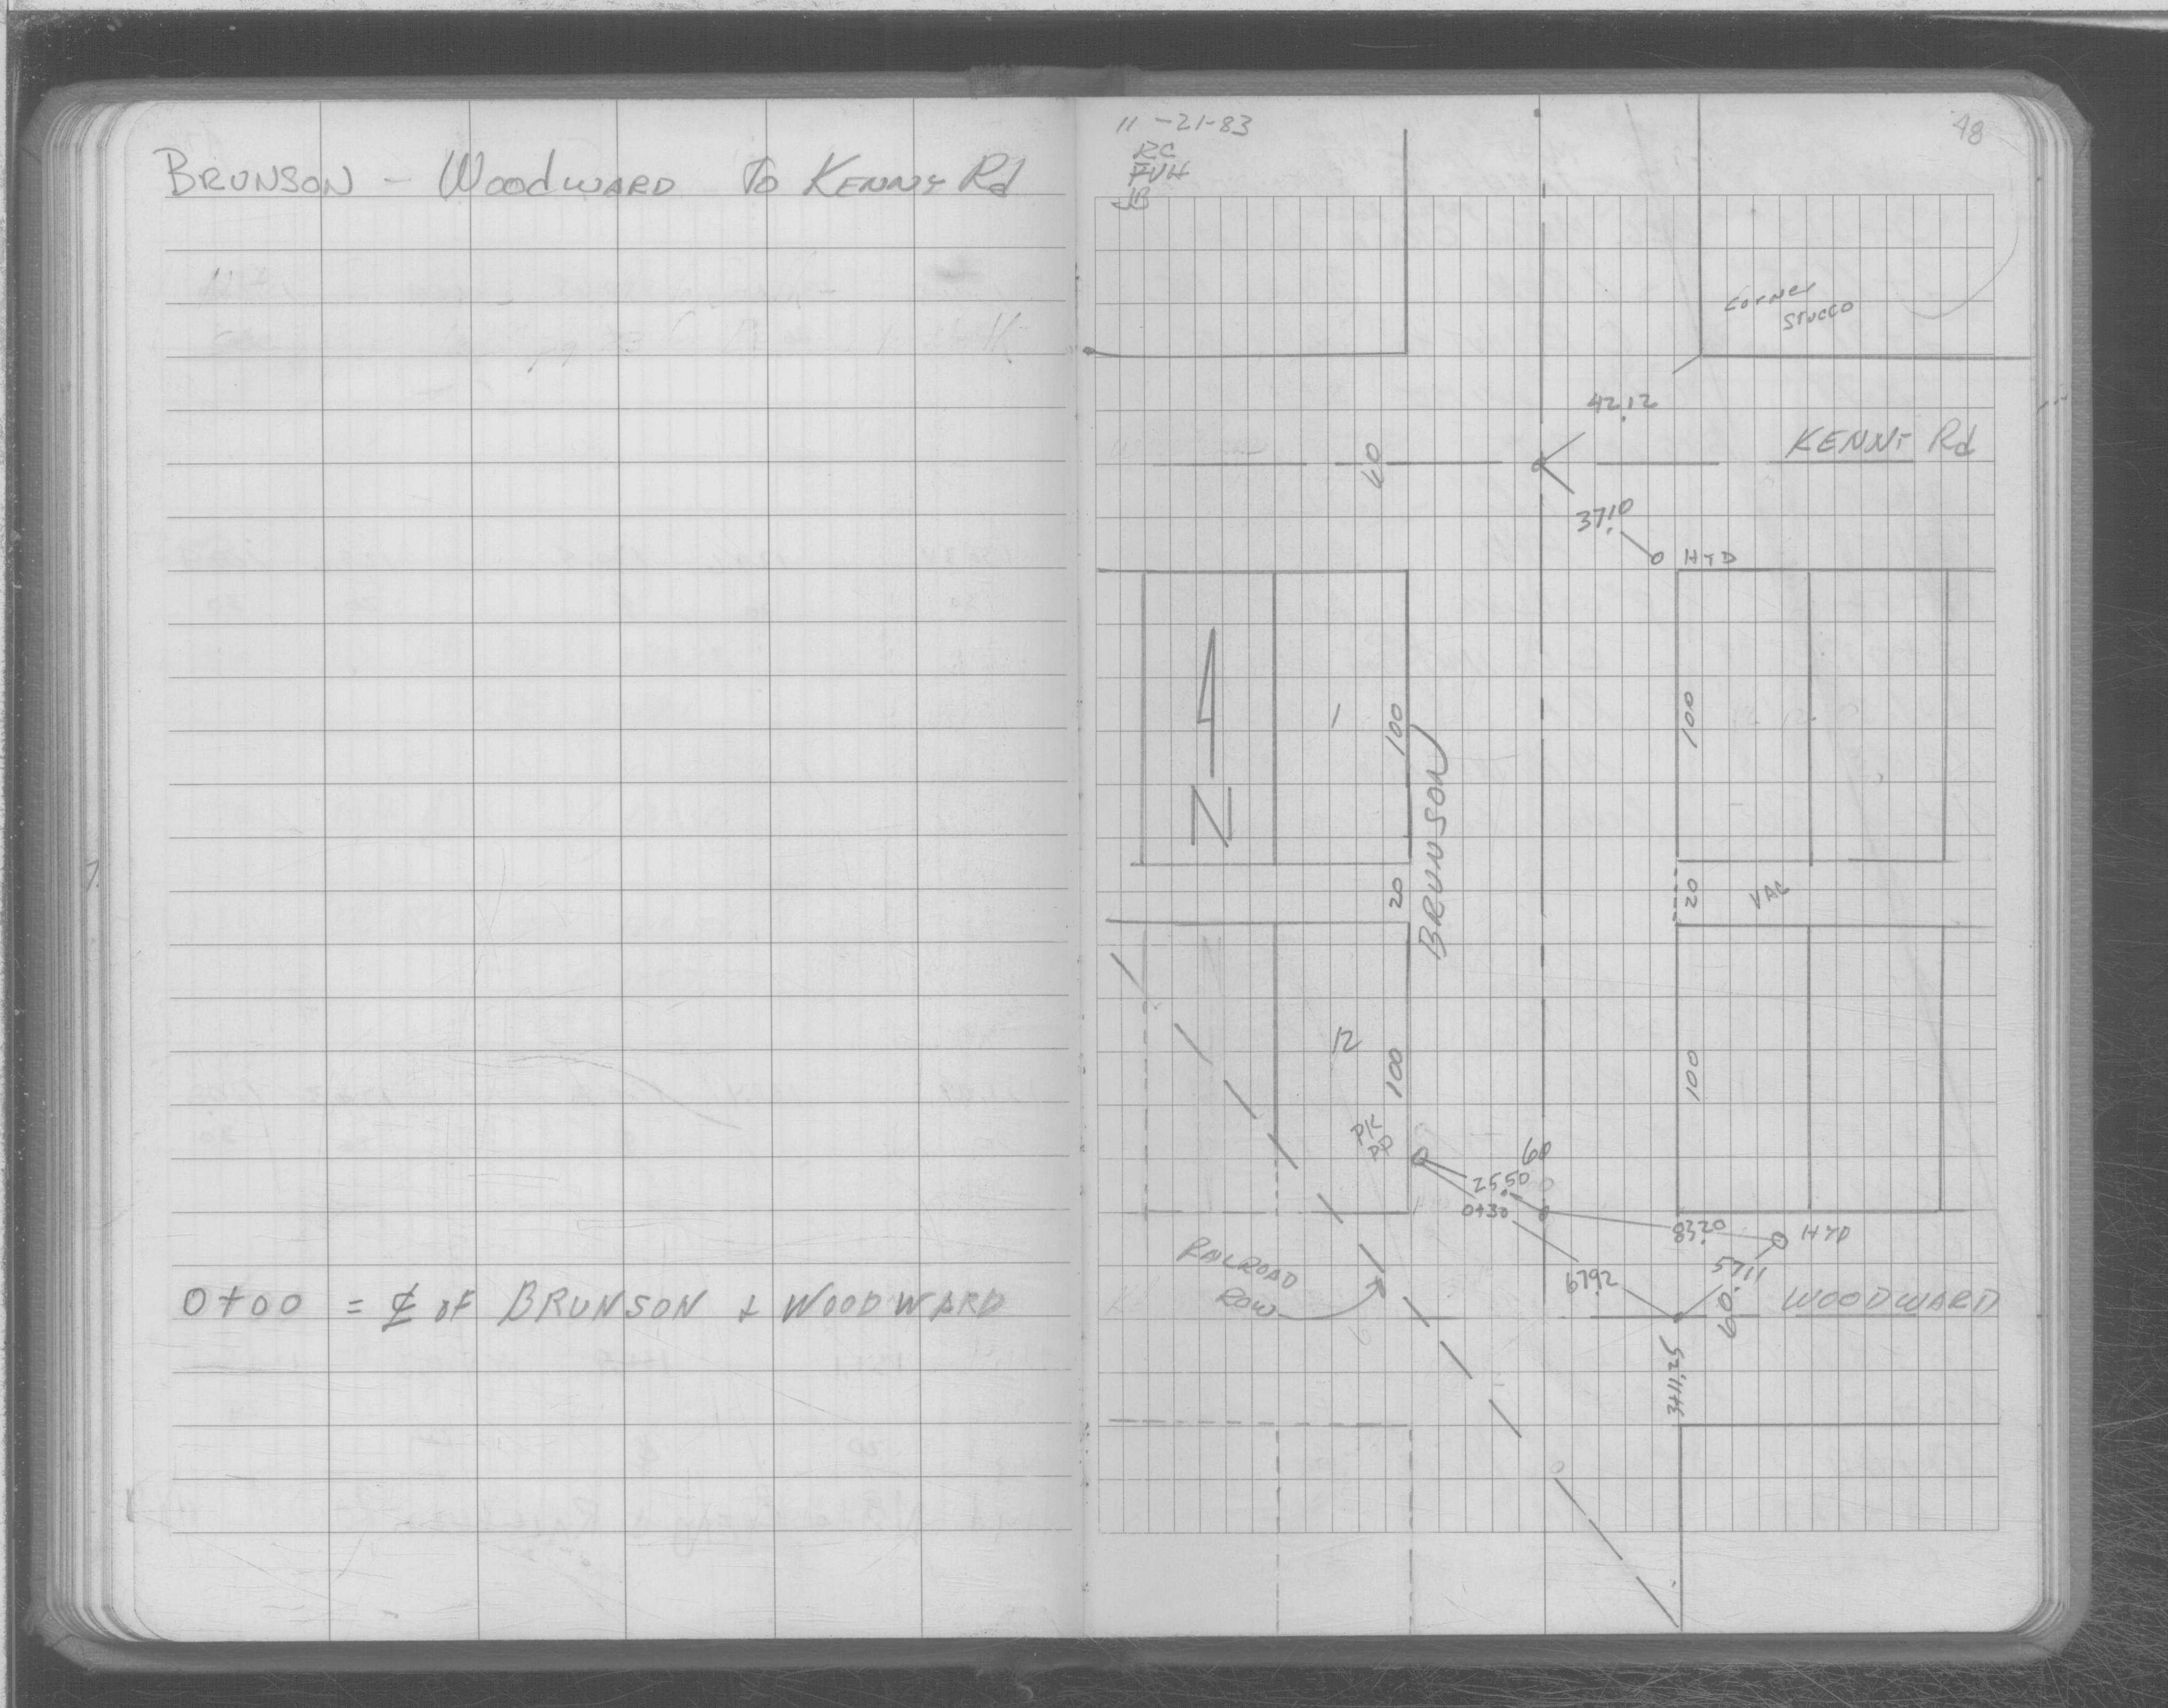 BRUNSON - WOODWARD TO KENNY Rd
0+00 = ℄ OF BRUNSON & WOODWARD
11-21-83
RC
FVH
JB
48
CORNER
STUCCO
42.12
KENNY Rd
60
37.0
HYD
N
1
100
100
BRUNSON
20
20
VAC
12
100
100
PK
PP
60
25.50
0+30
83.20
HYD
57.11
67.92
60
WOODWARD
RAILROAD
ROW
3+11.25